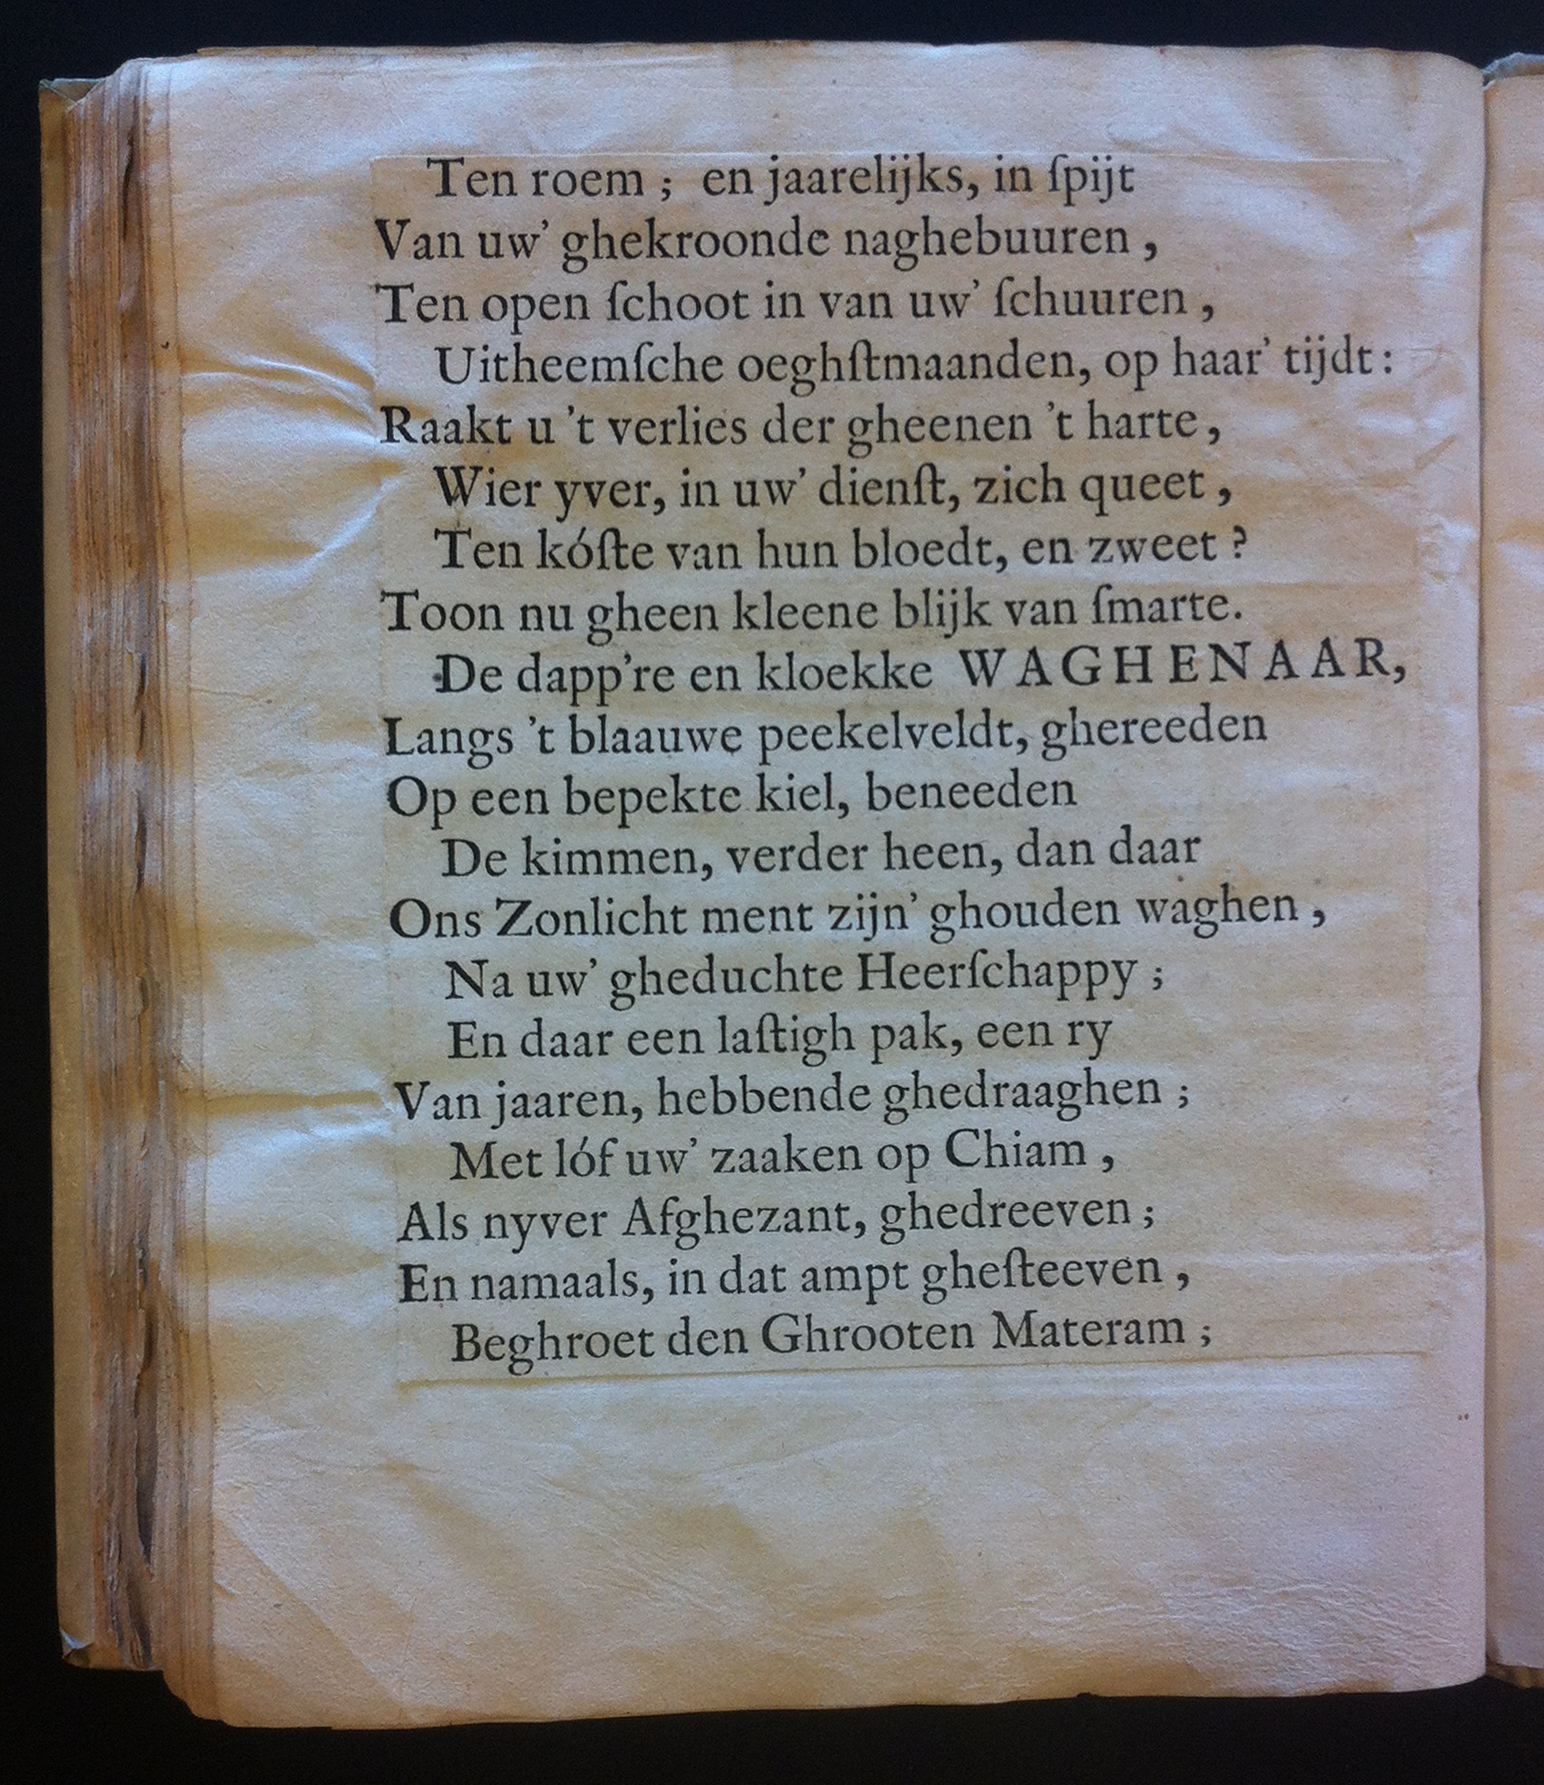 Ten roem ; en jaarelijks, in ſpijt
Van uw’ ghekroonde naghebuuren ,
Ten open ſchoot in van uw’ ſchuuren ,
Uitheemſche oeghſtmaanden, op haar’ tijdt :
Raakt u ’t verlies der gheenen ’t harte ,
Wier yver, in uw’ dienſt, zich queet ,
Ten kóſte van hun bloedt, en zweet ?
Toon nu gheen kleene blijk van ſmarte.
De dapp’re en kloekke WAGHENAAR,
Langs ’t blaauwe peekelveldt, ghereeden
Op een bepekte kiel, beneeden
De kimmen, verder heen, dan daar
Ons Zonlicht ment zijn’ ghouden waghen ,
Na uw’ gheduchte Heerſchappy ;
En daar een laſtigh pak, een ry
Van jaaren, hebbende ghedraaghen ;
Met lóf uw’ zaaken op Chiam ,
Als nyver Afghezant, ghedreeven ;
En namaals, in dat ampt gheſteeven ,
Beghroet den Ghrooten Materam ;